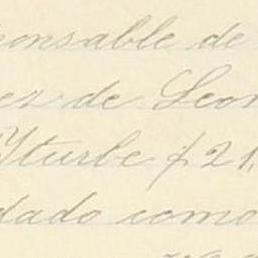 ponsable de
ez de Leon
Yturbe $21,
dado como